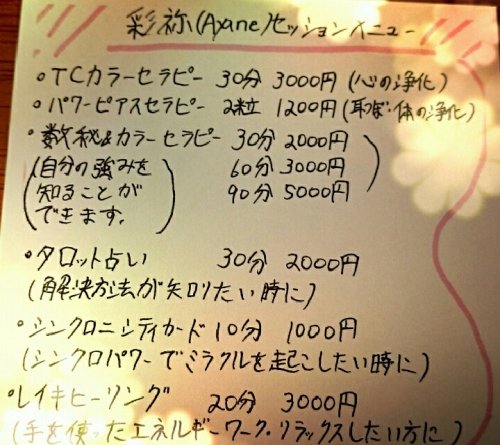 彩祢(Ayane)セッションメニュー
・TCカラーセラピー 30分 3000円(心の浄化)
・パワーピアスセラピー 2粒 1200円(耳つぼ・体の浄化)
・数秘&カラーセラピー 30分 2000円
(自分の強みを 60分 3000円
知ることが 90分 5000円)
できます。)
・タロット占い 30分 2000円
(解決方法が知りたい時に)
・シンクロニシティカード 10分 1000円
(シンクロパワーでミラクルを起こしたい時に)
・レイキヒーリング 20分 3000円
(手を使ったエネルギーワーク・リラックスしたい方に)